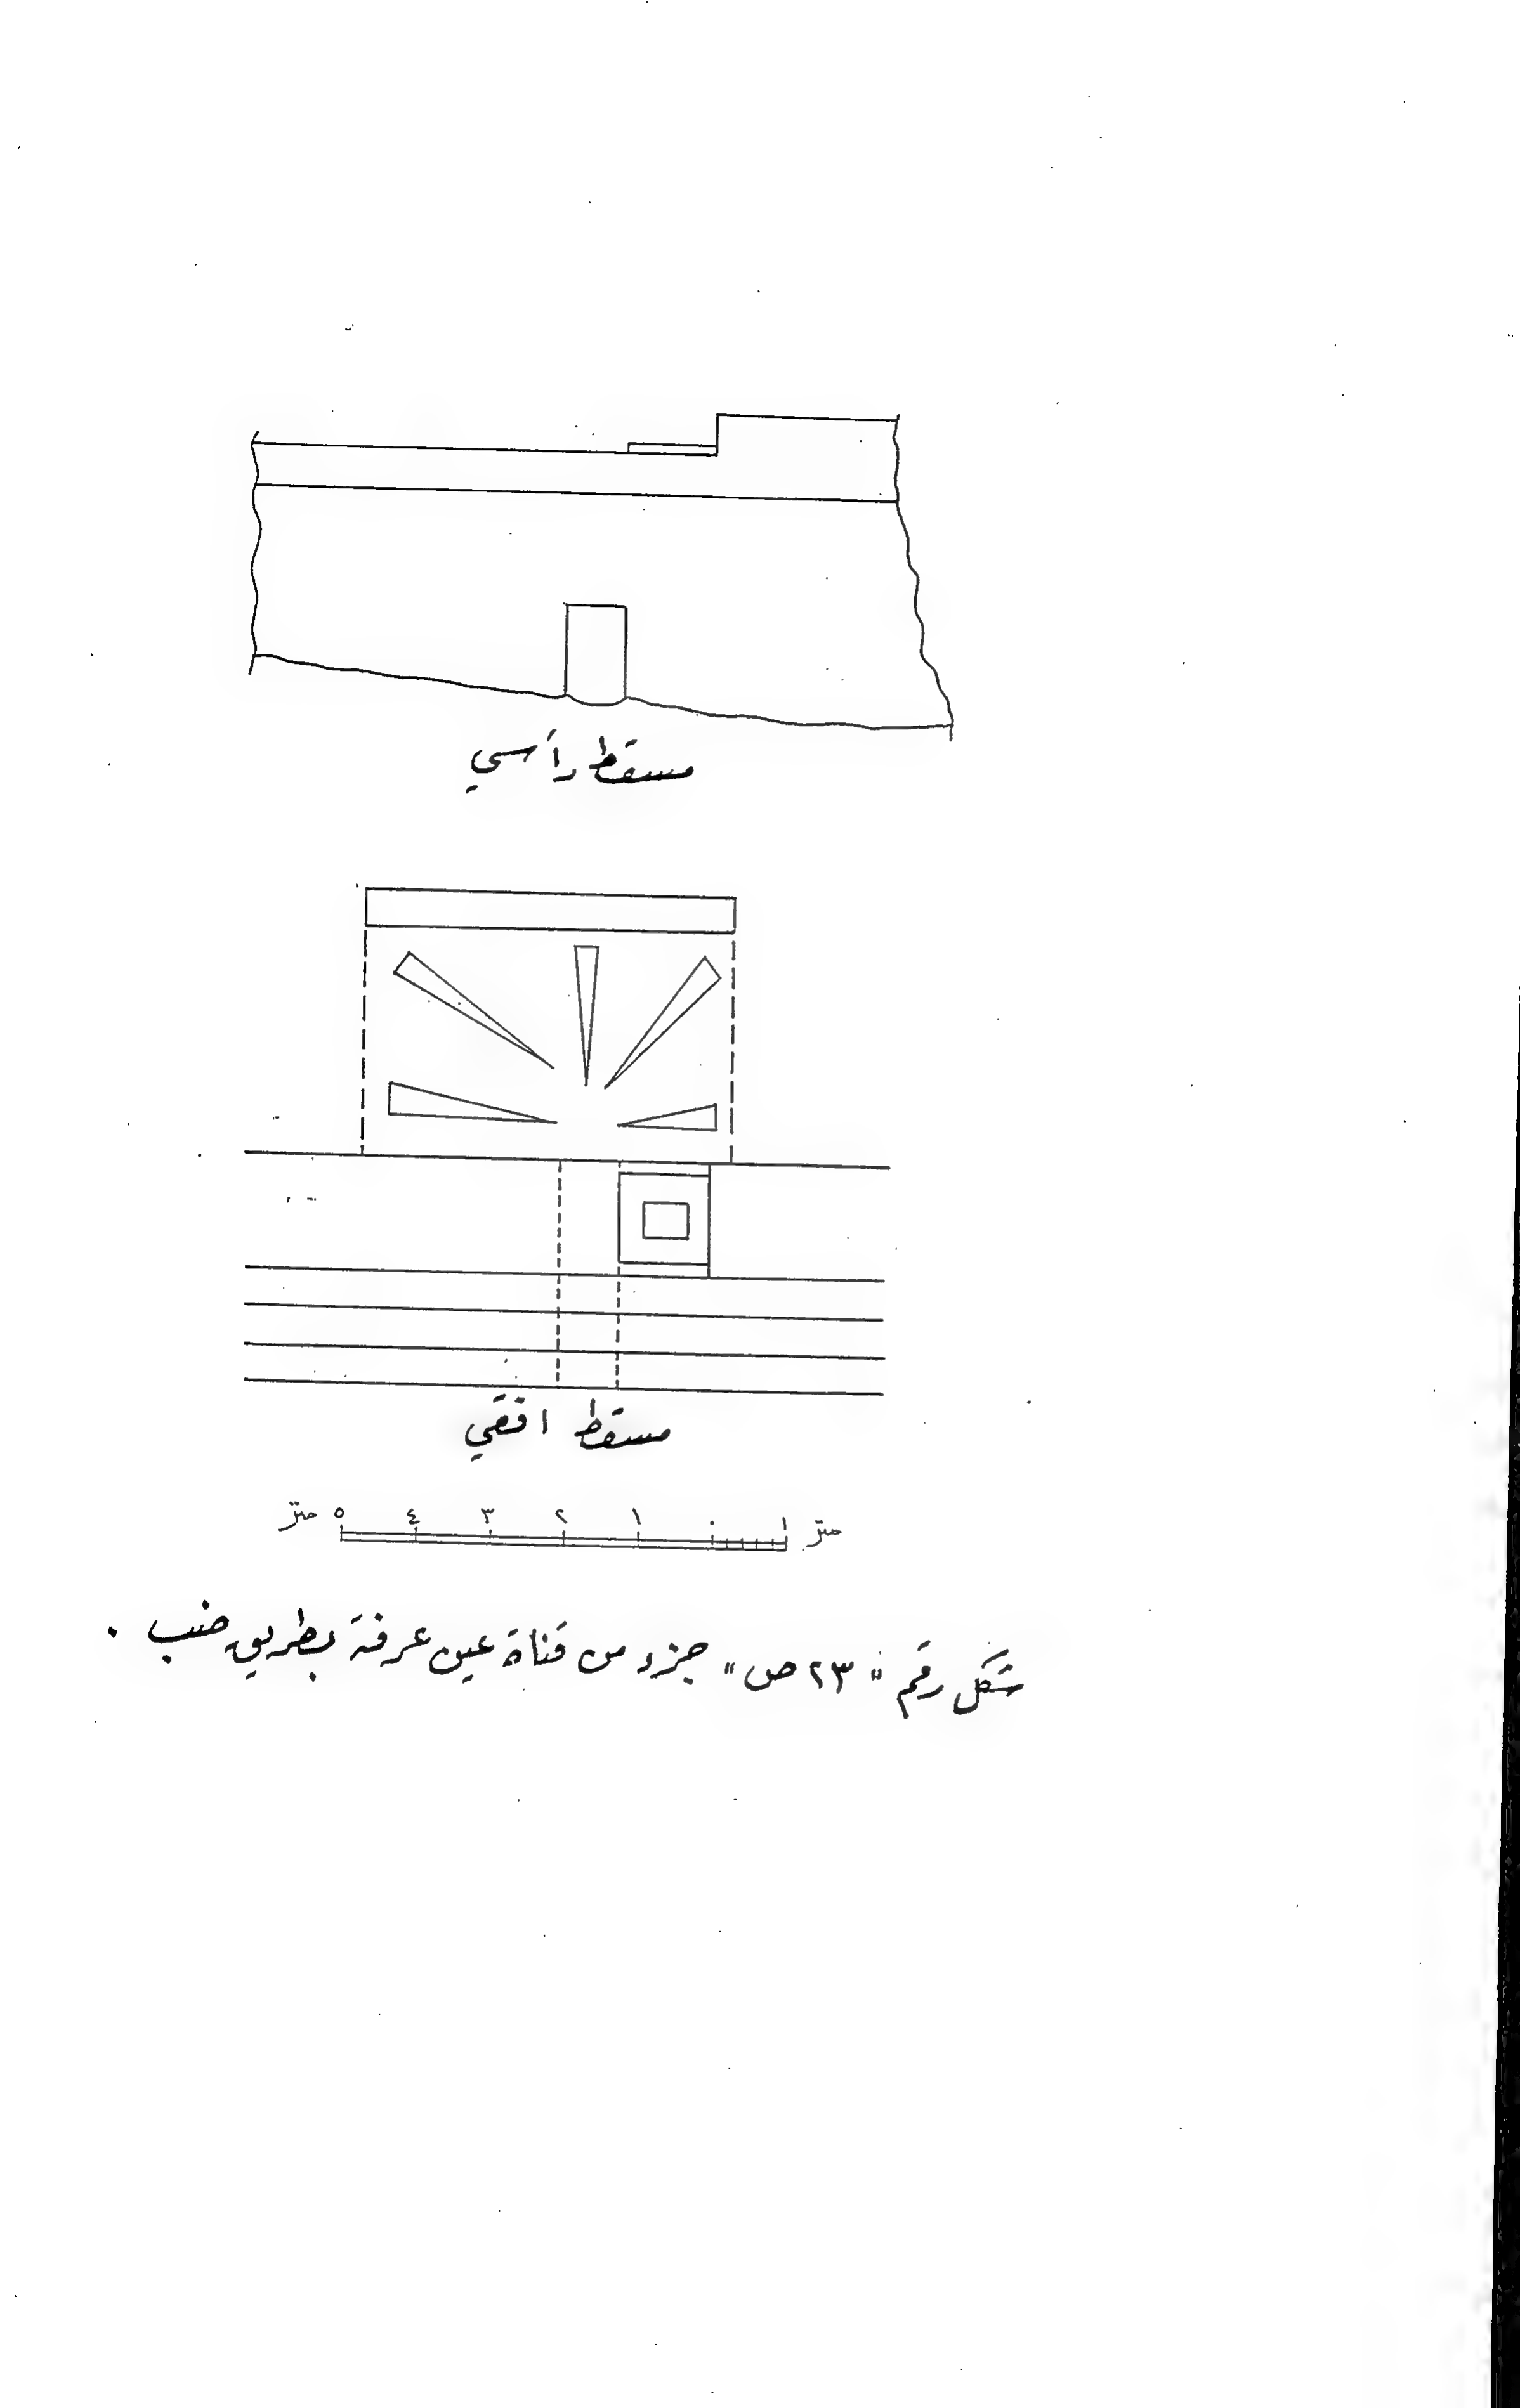 مسقط رأسي
مسقط افقي
متر ٥ ٤ ٣ ٢ ١ ٠ ١ متر
شكل رقم "٢٣ ص" جزء من قناة عين عرفة بطريق ضب .